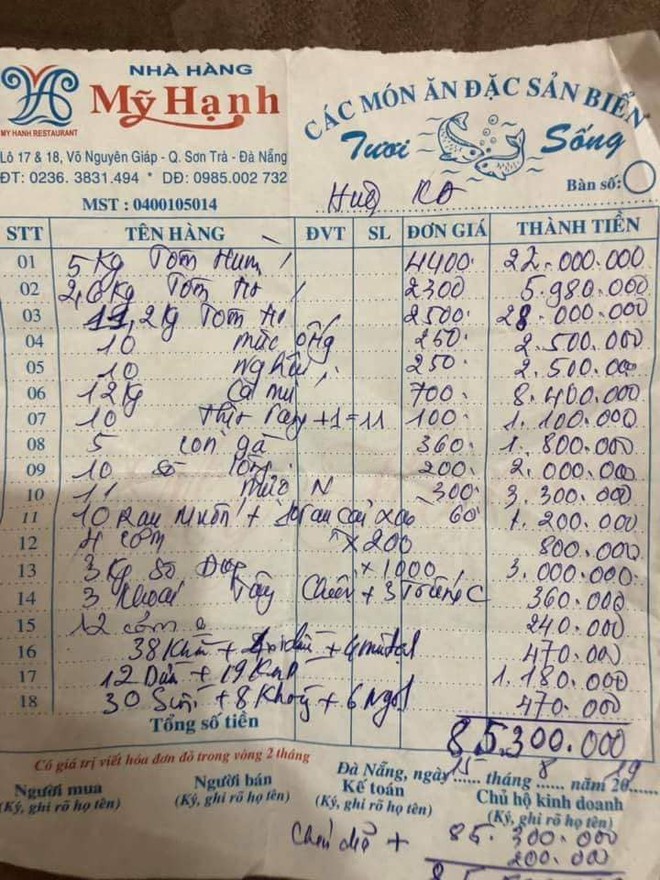 NHÀ HÀNG
Mỹ Hạnh
MY HANH RESTAURANT
CÁC MÓN ĂN ĐẶC SẢN BIỂN
Tươi Sống
Lô 17 & 18, Võ Nguyên Giáp - Q. Sơn Trà - Đà Nẵng
ĐT: 0236. 3831.494 * DĐ: 0985.002 732
MST : 0400105014
Bàn số:
STT TÊN HÀNG ĐVT SL ĐƠN GIÁ THÀNH TIỀN
01 5 Kg Tôm Hùm 4400 22.000.000
02 2,6 Kg Tôm 2300 5.980.000
03 11,2 Kg Tôm 2500 28.000.000
04 10 mực 250 2.500.000
05 10 nghêu 250 2.500.000
06 12 Kg Cá mú 700 8.400.000
07 10 +1=11 100 1.100.000
08 5 con gà 360 1.800.000
09 10 200 2.000.000
10 11 mực N 300 3.300.000
11 10 Rau Muốn + 60 1.200.000
12 4 cơm x 200 800.000
13 3 Kg x 1000 3.000.000
14 3 Khoai Tây Chiên + 3 360.000
15 12 cơm 240.000
16 38 Khăn + 470.000
17 12 + 19 1.180.000
18 30 + 8 + 6 470.000
Tổng số tiền 85.300.000
Có giá trị viết hóa đơn đỏ trong vòng 2 tháng
Đà Nẵng, ngày 15 tháng 8 năm 2019
Người mua Người bán Kế toán Chủ hộ kinh doanh
(Ký, ghi rõ họ tên) (Ký, ghi rõ họ tên) (Ký, ghi rõ họ tên) (Ký, ghi rõ họ tên)
+ 85.300.000
200.000